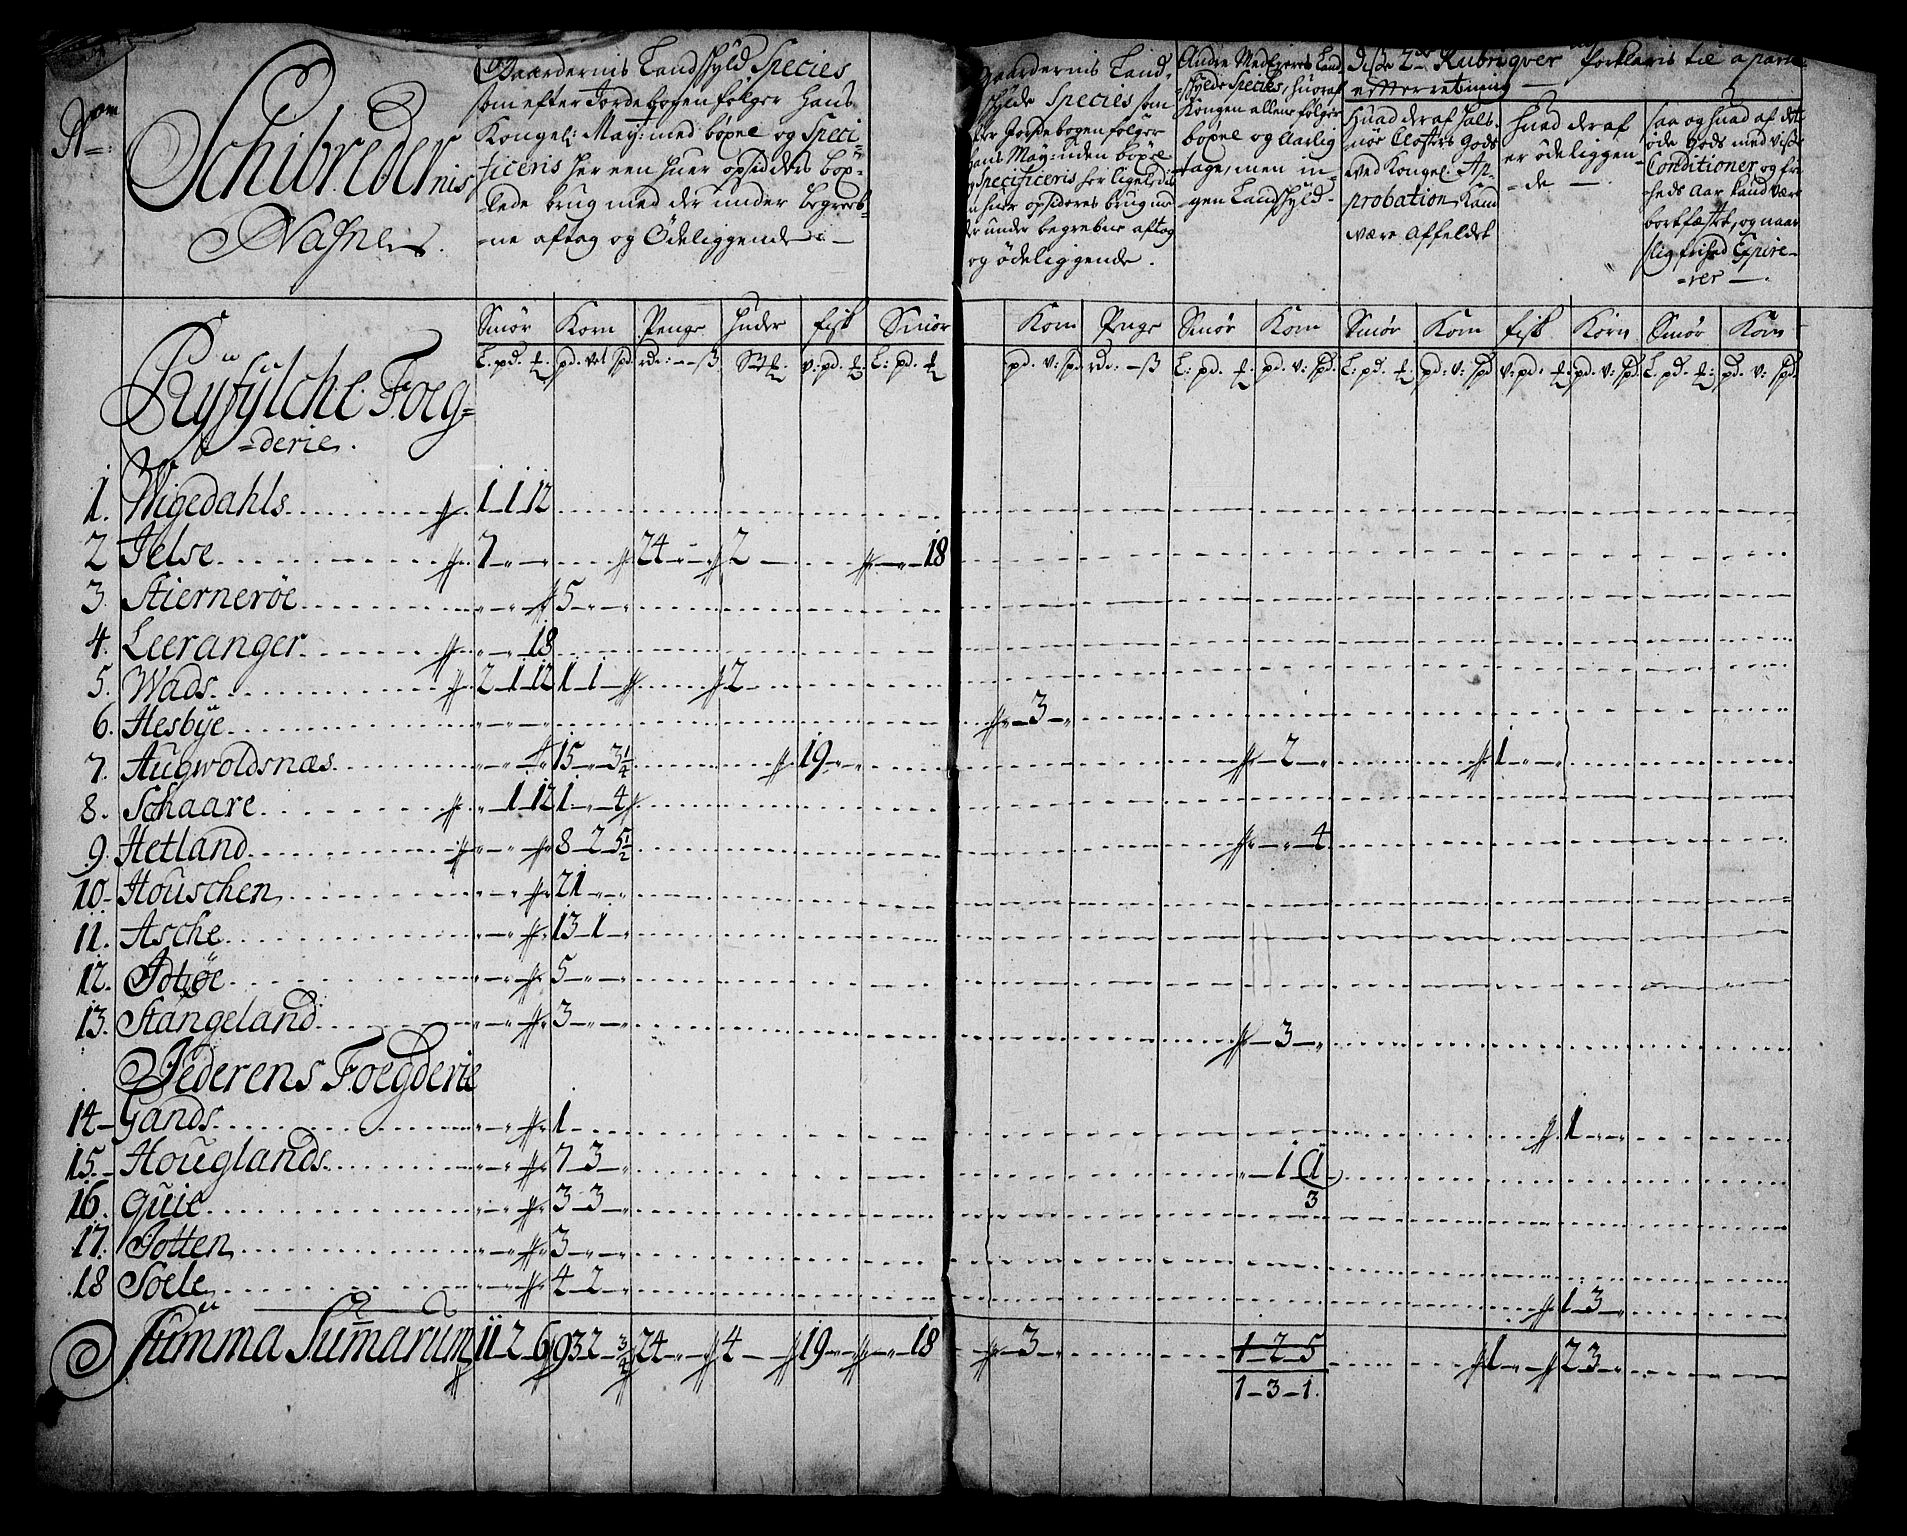 No
Schibredernis
Nafne
Gaardernis Landskyld Species
som efter Jordebogen følger Hans
Kongel: May: med böxel og Speci-
ficeris her een huer opsidders böx-
lede brug med der under begreb-
ne aftag og Ödeliggende
Gaardernis Land-
skylde Species som
efter Jordebogen følger
Hans May: uden böxel
Specificeris her ligeledis
huer opsidders brug
under begrebne aftag
og ödeliggende.
Andre Medeyeres Land-
skylde Species, huoraf
Kongen allene følger
böxel og Aarlig
tage, men in-
gen Landskyld
Disse 2de Rubriqver forklaris til aparte
efterretning
Huad der af Hals-
nöe Closters Gods
med Kongel: Ap-
probation kand
være Affeldet
Huad der af
er ödeliggen-
de
Saa og huad af dette
öde Gods med visse
Conditioner og fri-
heds Aar kand være
bortfæstet, og naar
slig frihed Expire-
rer
Smör Korn Penge Huder fisk Smör Korn Penge Smör Korn Smör Korn fisk Korn Smör Korn
L. pd. pd. vet spd. rdr: ß v: pd. L: pd. pd. v: sp. rdr: ß L: pd. pd. v: spd. L: pd. pd: v: spd v: pd. pd. v: spd. L. pd. pd. v: spd.
Ryfylche Foeg-
derie.
1. Wigedahls 1 1 12
2 Jelse 7 24 2 18
3. Stiernerøe 5
4. Leeranger 18
5. Wads 2 1 12 1 1 2
6. Hesbÿe 3
7. Augwoldsnæs 4 15 3 1/4 19 2 1
8. Schaare 1 12 1 4
9. Hetland 8 2 5 1/2 4
10. Houschen 21
11. Asche 13 1
12. Sobøe 5
13. Stangeland 3 3
Jederens Foegderie
14 Gands 1 1
15. Houglands 7 3 1 1
3
16. Quie 3 3
17. Totten 3
18 Soele 4 2 1 3
Summa Sumarum 11 2 6 93 2 3/4 24 4 19 18 3 1-2-5 1 2 3
1-3-1.